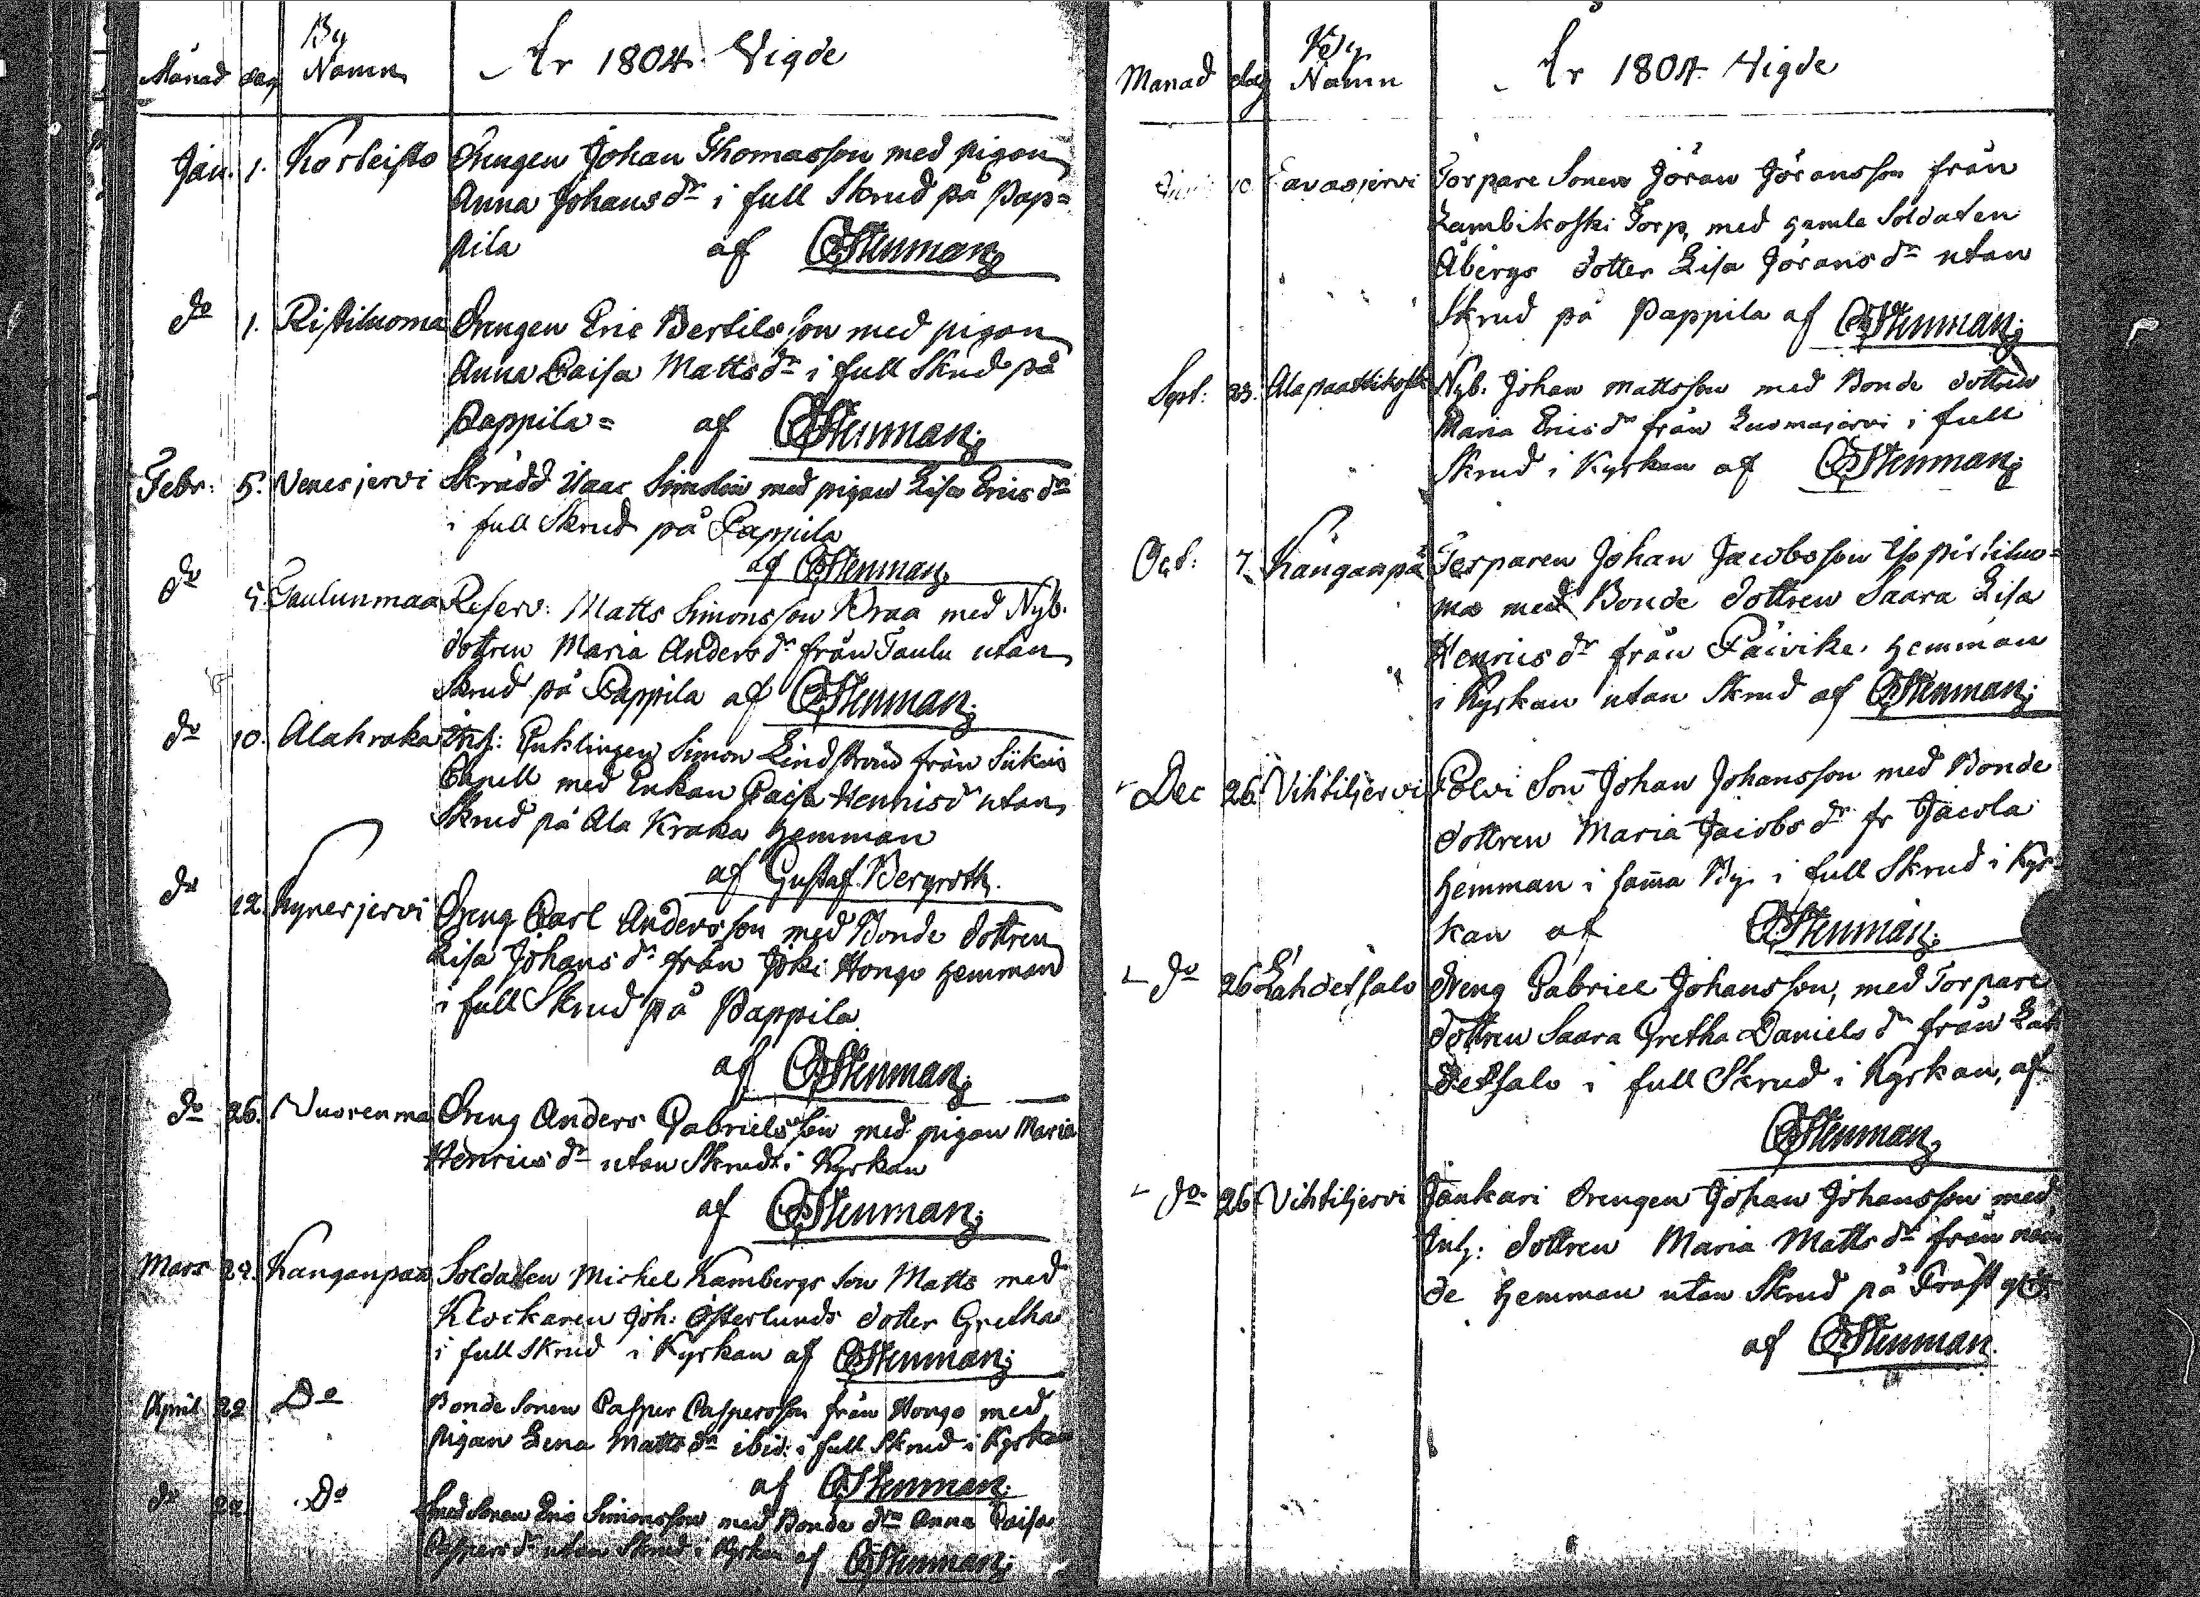 Månad dag By Namn År 1804. Vigde
Jan. 1. Korteisto Drengen Johan Thomasson med pigan
Anna Johansdr i full Skrud på Pap=
pila af CGStenman
do 1. Ristiluoma Drengen Eric Bertilsson med pigan
Anna Caisa Mattsdr i full Skrud på
Pappila= af CGStenman
Febr: 5. Venesjervi Skrädd Isaac Simelin med pigan Lisa Ericsdr
i full Skrud på Pappila
af CGStenman
do 5. Taulunmaa Reserv: Matts Simonsson Kraa med Nyb.
dottren Maria Andersdr från Taulu utan
Skrud på Pappila af CGStenman
do 10. Alahraka Enklingen Simon Lindström från Siikais
Capell med Enkan Caisa Henricsdr utan
Skrud på Ala Kraka hemman
af Gustaf Bergroth.
do 12. Kynesjervi Dreng Carl Andersson med Bonde dottren
Lisa Johansdr från Joki Hongo hemman
i full Skrud på Pappila
af CGStenman
do 26. Vuorenma Dreng Anders Gabrielsson med pigan Maria
Henricsdr utan Skrud i Kyrkan
af CGStenman
Mars 24. Kanganpää Soldaten Michel Kambergs son Matts med
Klockaren Joh: Österlunds dotter Gretha
i full Skrud i Kyrkan af CGStenman
April 22 Do Bonde sonen Casper Caspersson från Hongo med
pigan Lena Mattsdr ibid: i full Skrud i Kyrkan
af CGStenman
do 22. Do Smed sonen Eric Simonsson med Bonde dr Anna Caisa
Caspersdr utan Skrud i Kyrkan af CGStenman
Manad dag By Namn År 1804. Vigde
10 Tavasjervi Torpare Sonen Jöran Jöransson från
Lambikoski Torp, med gamla Soldaten
Åbergs dotter Lisa Jöransdr utan
Skrud på Pappila af CGStenman
Sept: 23. Alapaattikoski Nyb. Johan Mattsson med Bonde dottren
Maria Ericsdr från Luomajervi i full
Skrud i Kyrkan af CGStenman
Oct: 7. Kånganpä Torparen Johan Jacobsson Ylipirtiluo=
ma med Bonde dottren Saara Lisa
Henricsdr från Päivike hemman
i Kyrkan utan Skrud af CGStenman
Dec 26. Vihtiljervi Polvi Son Johan Johansson med Bonde
dottren Maria Jacobsdr fr Jacola
hemman i samma By. i full Skrud i Kyr
kan af CGStenman
do 26 Lahdetsalo Dreng Gabriel Johansson, med Torpare
dottren Saara Gretha Danielsdr från Lah
detsalo i full Skrud i Kyrkan, af
CGStenman
do 26 Vihtiljervi Jankari drengen Johan Johansson med
Inh: dottren Maria Mattsdr från näm
de hemman utan Skrud på Prästgd
af CGStenman.